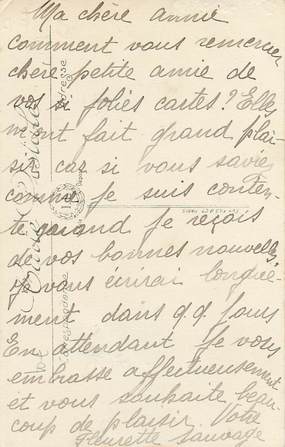 Ma chère annie
comment vous remercier
chère petite amie de
vos si jolies cartes? Elles
m'ont fait grand plai-
sir car si vous saviez
comme je suis conten-
te quand je reçois
de vos bonnes nouvelles
je vous écrirai longue-
ment dans q.q. jours
En attendant je vous
embrasse affectueusement
et vous souhaite beau-
coup de plaisir. Votre
Fleurette Sauvage
Correspondance
Adresse